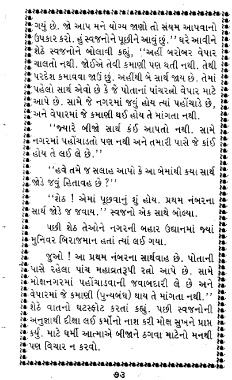 ગયું છે. જો આપ મને યોગ્ય જાણો તો સંયમ આપવાનો
ઉપકાર કરો. હું સ્વજનોને પૂછીને આવું છું.” ઘરે આવીને
શેઠે સ્વજનોને બોલાવી કહ્યું, “અહીં બરોબર વેપાર
ચાલતો નથી. જોઈએ તેવી કમાણી પણ થતી નથી. તેથી
પરદેશ કમાવવા જાઉં છું. અહીંથી બે સાર્થ જાય છે. તેમાં
પહેલો સાર્થ એવો છે કે જે પોતાનાં પાંચરત્નો વેપાર માટે
આપે છે. સામે જે નગરમાં જવું હોય ત્યાં પહોંચાડે છે,
અને વેપારમાં જે કમાણી થઈ હોય તે માંગતા નથી.
“જ્યારે બીજો સાર્થ કંઈ આપતો નથી. સામે
નગરમાં પહોંચાડતો પણ નથી અને તમારી પાસે જે કાંઈ
હોય તે લઈ લે છે.”
“હવે તમે જ સલાહ આપો કે આ બેમાંથી કયા સાર્થ
જોડે જવું હિતાવહ છે ?”
“શેઠ ! એમાં પૂછવાનું શું હોય. પ્રથમ નંબરના
સાર્થ જોડે જ જવાય.” સ્વજનો એક સાથે બોલ્યા.
પછી શેઠ તેઓને નગરની બહાર ઉદ્યાનમાં જ્યાં
મુનિવર બિરાજમાન હતાં ત્યાં લઈ ગયા.
જુઓ ! આ પ્રથમ નંબરના સાર્થવાહ છે. પોતાની
પાસે રહેલા પાંચ મહાવ્રતરૂપી રત્નો આપે છે. સામે
મોક્ષનગરમાં પહોંચાડવાની જવાબદારી લે છે અને
વેપારમાં જે કમાણી (પુન્યબંધ) થાય તે માંગતા નથી.”
શેઠે વાતનો ઘટસ્ફોટ કરતાં કહ્યું. પછી સ્વજનોની
અનુજ્ઞાથી દીક્ષા લઈ કર્મોનો નાશ કરી મોક્ષ સુખને પ્રાપ્ત
કર્યું. માટે ધર્મી આત્માએ બીજાને ઠગવા માટેનો મનથી
પણ વિચાર ન કરવો.
૭૩